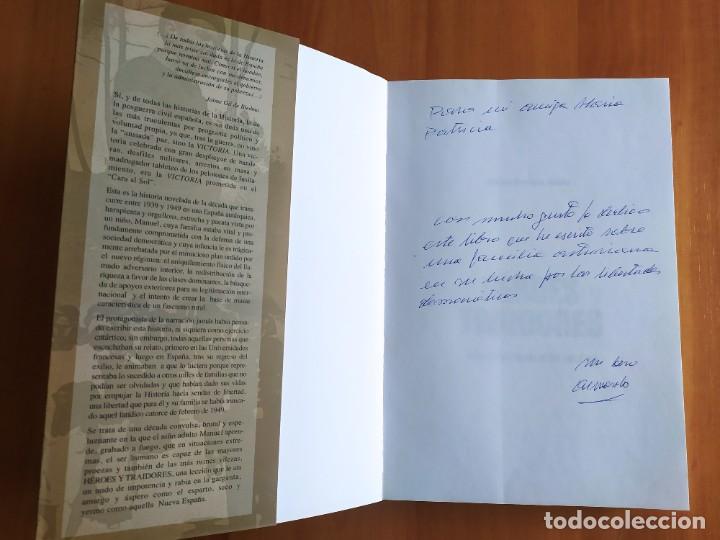 ...¡De todas las historias de la Historia
la más triste sin duda es la de España
porque termina mal. Como si el hombre,
harto ya de luchar con sus demonios,
decidiese encargarles el gobierno
y la administración de su pobreza!...
Jaime Gil de Biedma
Sí, y de todas las historias de la Historia, la de
la posguerra civil española, es sin duda una de
las más truculentas por programa político y
voluntad propia, ya que, tras la guerra, no vino
la "ansiada" paz, sino la VICTORIA. Una vic-
toria celebrada con gran despliegue de
desfiles militares, arrestos en masa y
madrugador tableteo de los pelotones de fusila-
miento, era la VICTORIA prometida en el
"Cara al Sol".
Esta es la historia novelada de la década que trans-
curre entre 1939 y 1949 en una España
harapienta y orgullosa, estrecha y pacata vista por
un niño, Manuel, cuya familia estaba vital y pro-
fundamente comprometida con la defensa de una
sociedad democrática y cuya infancia le es trágica-
mente arrebatada por el minucioso plan urdido por
el nuevo régimen: el aniquilamiento físico del lla-
mado adversario interior, la redistribución de la
riqueza a favor de las clases dominantes, la búsque-
da de apoyos exteriores para su legitimación inter-
nacional y el intento de crear la base de masas
característica de un fascismo rural.
El protagonista de la narración jamás había pensa-
do escribir esta historia, ni siquiera como ejercicio
catártico; sin embargo, todas aquellas personas que
escuchaban su relato, primero en las Universidades
francesas y luego en España, tras su regreso del
exilio, le animaban a que lo hiciera porque repre-
sentaba lo sucedido a otros miles de familias que no
podían ser olvidadas y que habían dado sus vidas
por empujar la Historia hacia sendas de libertad,
una libertad que para él y su familia se había trunca-
do aquel fatídico catorce de febrero de 1949.
Se trata de una década convulsa, brutal y espe-
luznante en la que el niño adulto Manuel apren-
de, grabado a fuego, que en situaciones extre-
mas, el ser humano es capaz de las mayores
proezas y también de las más ruines vilezas,
HÉROES Y TRAIDORES, una lección que le ata
un nudo de impotencia y rabia en la garganta,
amargo y áspero como el esparto, seco y
yermo como aquella Nueva España.
Para mi amiga María
Patricia
con mucho gusto te dedico
este libro que he escrito sobre
una familia asturiana
en su lucha por las libertades
democráticas
un beso